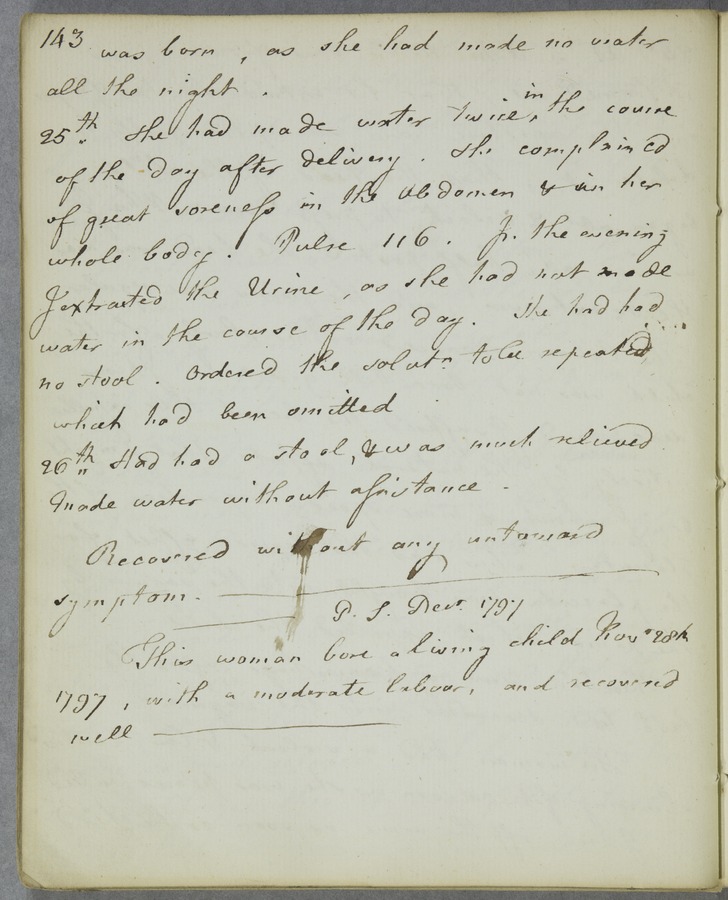 143 was born, as she had made no water
all the night.
25th She had made water twice in the course
of the day after delivery. She complained
of great soreness in the Abdomen & in her
whole body. Pulse 116. In the evening
I extracted the Urine, as she had not made
water in the course of the day. She had had
no stool. Ordered the solutn to be repeated
which had been omitted
26th Had had a stool, & was much relieved
Made water without assistance.
Recovered without any untoward
symptom.
P. S. Decr. 1797
This woman bore a living child Novr 28th
1797, with a moderate labour, and recovered
well